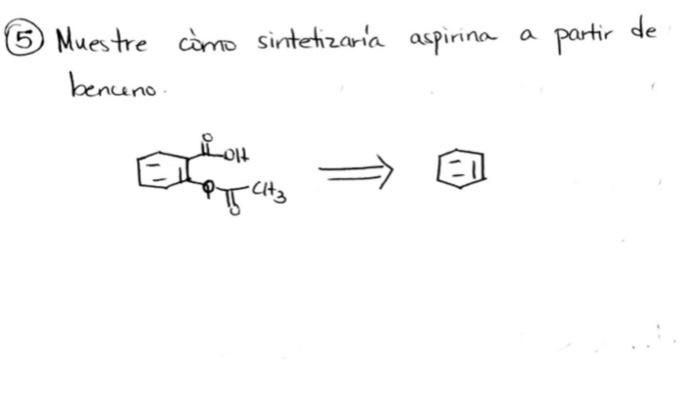 ⑤ Muestre còmo sintetizaría aspirina a partir de
benceno.
O
OH
O CH3
O